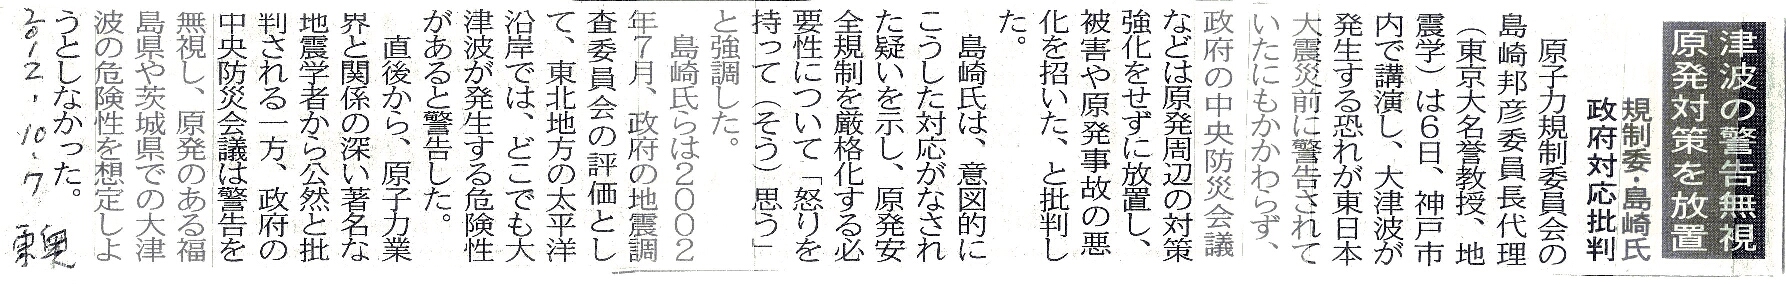 津波の警告無視
原発対策を放置
規制委・島崎氏
政府対応批判
原子力規制委員会の
島崎邦彦委員長代理
（東京大名誉教授、地
震学）は６日、神戸市
内で講演し、大津波が
発生する恐れが東日本
大震災前に警告されて
いたにもかかわらず、
政府の中央防災会議
などは原発周辺の対策
強化をせずに放置し、
被害や原発事故の悪
化を招いた、と批判し
た。
島崎氏は、意図的に
こうした対応がなされ
た疑いを示し、原発安
全規制を厳格化する必
要性について「怒りを
持って（そう）思う」
と強調した。
島崎氏らは２００２
年７月、政府の地震調
査委員会の評価とし
て、東北地方の太平洋
沿岸では、どこでも大
津波が発生する危険性
があると警告した。
直後から、原子力業
界と関係の深い著名な
地震学者から公然と批
判される一方、政府の
中央防災会議は警告を
無視し、原発のある福
島県や茨城県での大津
波の危険性を想定しよ
うとしなかった。
2012.10.7 東奥